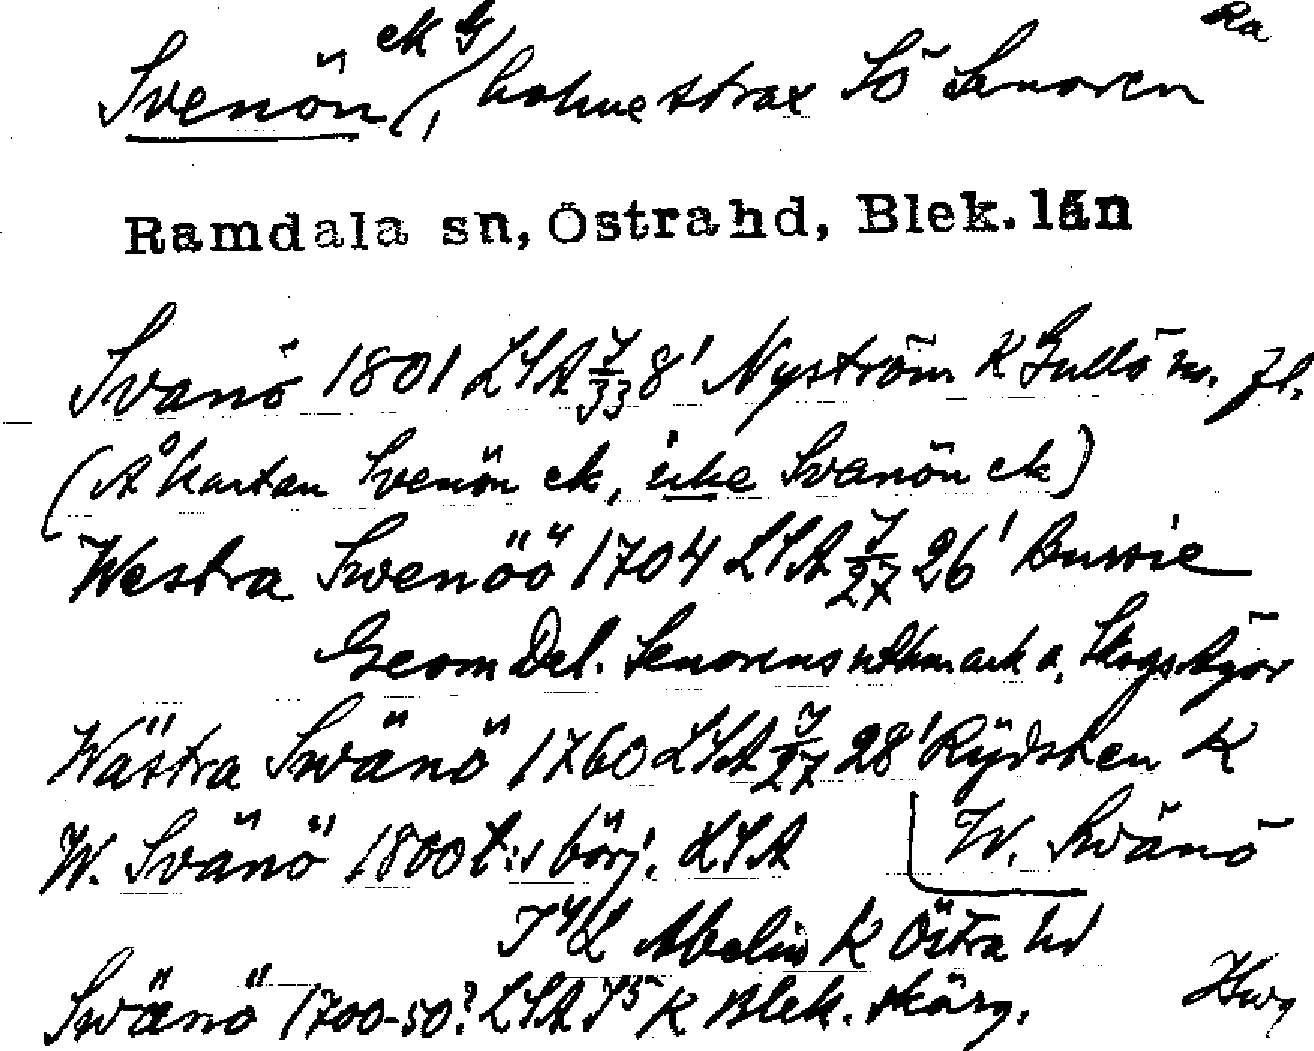 Ra
Svenön (ek G), holme strax SÖ Senoren
Ramdala sn, Östra hd, Blek. län
Svanö 1801 LSA J/33 8¹ Nyström K Gullö m. fl.
(Å kartan Svenön ek, icke Svanön ek)
Westra Swenöö 1704 LSA J/27 26¹ Bussie
Geom Del. Senorens utkmark o. Skogskjör
Wästra Swänö 1760 LSA J/27 28¹ Rÿdsten K
W. Svänö 1800 t:s börj. LSA W. Swänö
J 4/2 Abelin K Östra hd
Swänö 1700-50? LSA J5 K Blek. skärg.